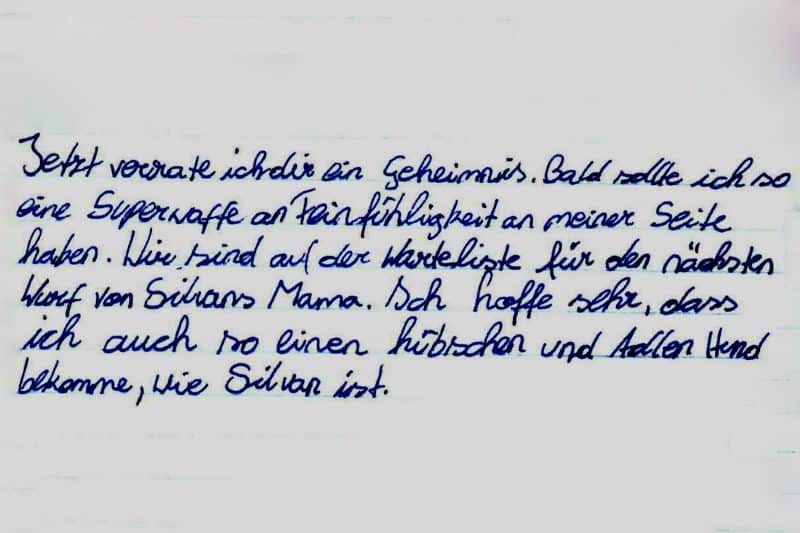 Jetzt verrate ich dir ein Geheimnis. Bald sollte ich so
eine Superwaffe an Feinfühligkeit an meiner Seite
haben. Wir sind auf der Warteliste für den nächsten
Wurf von Silvans Mama. Ich hoffe sehr, dass
ich auch so einen hübschen und tollen Hund
bekomme, wie Silvan ist.